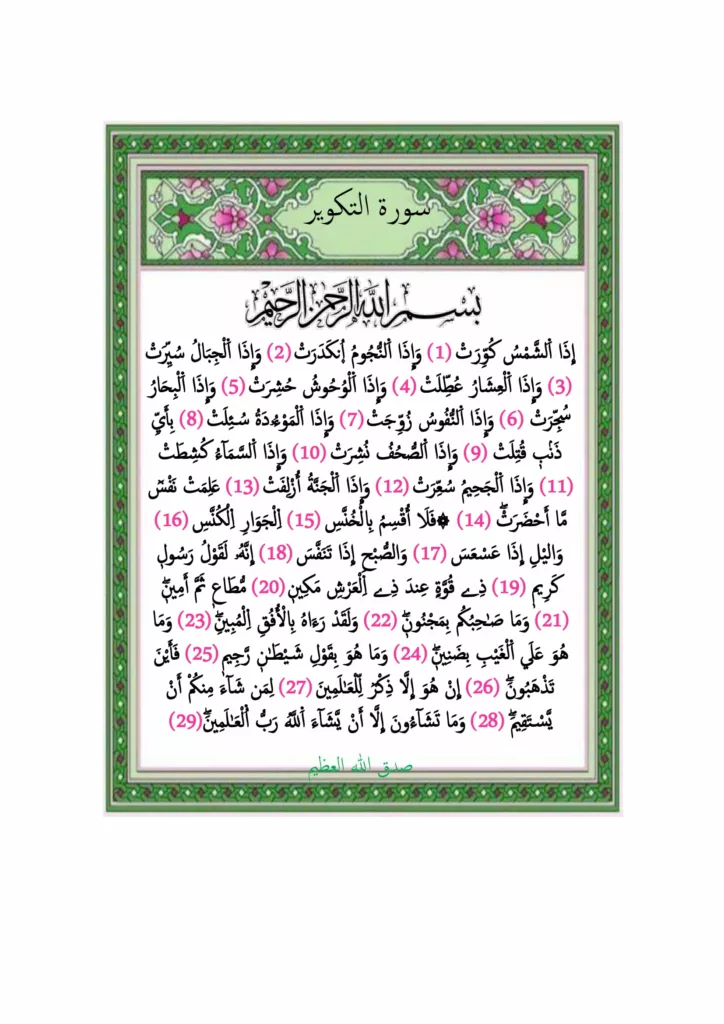 سورة التكوير
بسم الله الرحمن الرحيم
إِذَا اَ۬لشَّمْسُ كُوِّرَتْ (1) وَإِذَا اَ۬لنُّجُومُ اُ۪نكَدَرَتْ (2) وَإِذَا اَ۬لْجِبَالُ سُيِّرَتْ
(3) وَإِذَا اَ۬لْعِشَارُ عُطِّلَتْ (4) وَإِذَا اَ۬لْوُحُوشُ حُشِرَتْ (5) وَإِذَا اَ۬لْبِحَارُ
سُجِّرَتْ (6) وَإِذَا اَ۬لنُّفُوسُ زُوِّجَتْ (7) وَإِذَا اَ۬لْمَوْءُۥدَةُ سُئِلَتْ (8) بِأَيِّ
ذَنۢبٖ قُتِلَتْ (9) وَإِذَا اَ۬لصُّحُفُ نُشِرَتْ (10) وَإِذَا اَ۬لسَّمَآءُ كُشِطَتْ
(11) وَإِذَا اَ۬لْجَحِيمُ سُعِّرَتْ (12) وَإِذَا اَ۬لْجَنَّةُ أُزْلِفَتْ (13) عَلِمَتْ نَفْسٞ
مَّا أَحْضَرَتْۖ (14) ۞فَلَا أُقْسِمُ بِالْخُنَّسِ (15) اِ۬لْجَوَارِ اِ۬لْكُنَّسِ (16)
وَاليْلِ إِذَا عَسْعَسَ (17) وَالصُّبْحِ إِذَا تَنَفَّسَ (18) إِنَّهُۥ لَقَوْلُ رَسُولٖ
كَرِيمٖ (19) ذِے قُوَّةٍ عِندَ ذِے اِ۬لْعَرْشِ مَكِينٖ (20) مُّطَاعٖ ثَمَّ أَمِينٖۖ
(21) وَمَا صَٰحِبُكُم بِمَجْنُونٖۖ (22) وَلَقَدْ رَءَاهُ بِالْأُفُقِ اِ۬لْمُبِينِۖ (23) وَمَا
هُوَ عَلَي اَ۬لْغَيْبِ بِضَنِينٖۖ (24) وَمَا هُوَ بِقَوْلِ شَيْطَٰنٖ رَّجِيمٖ (25) فَأَيْنَ
تَذْهَبُونَۖ (26) إِنْ هُوَ إِلَّا ذِكْرٞ لِّلْعَٰلَمِينَ (27) لِمَن شَآءَ مِنكُمْ أَنْ
يَّسْتَقِيمَۖ (28) وَمَا تَشَآءُونَ إِلَّا أَنْ يَّشَآءَ اَ۬للَّهُ رَبُّ اُ۬لْعَٰلَمِينَۖ (29)
صدق الله العظيم